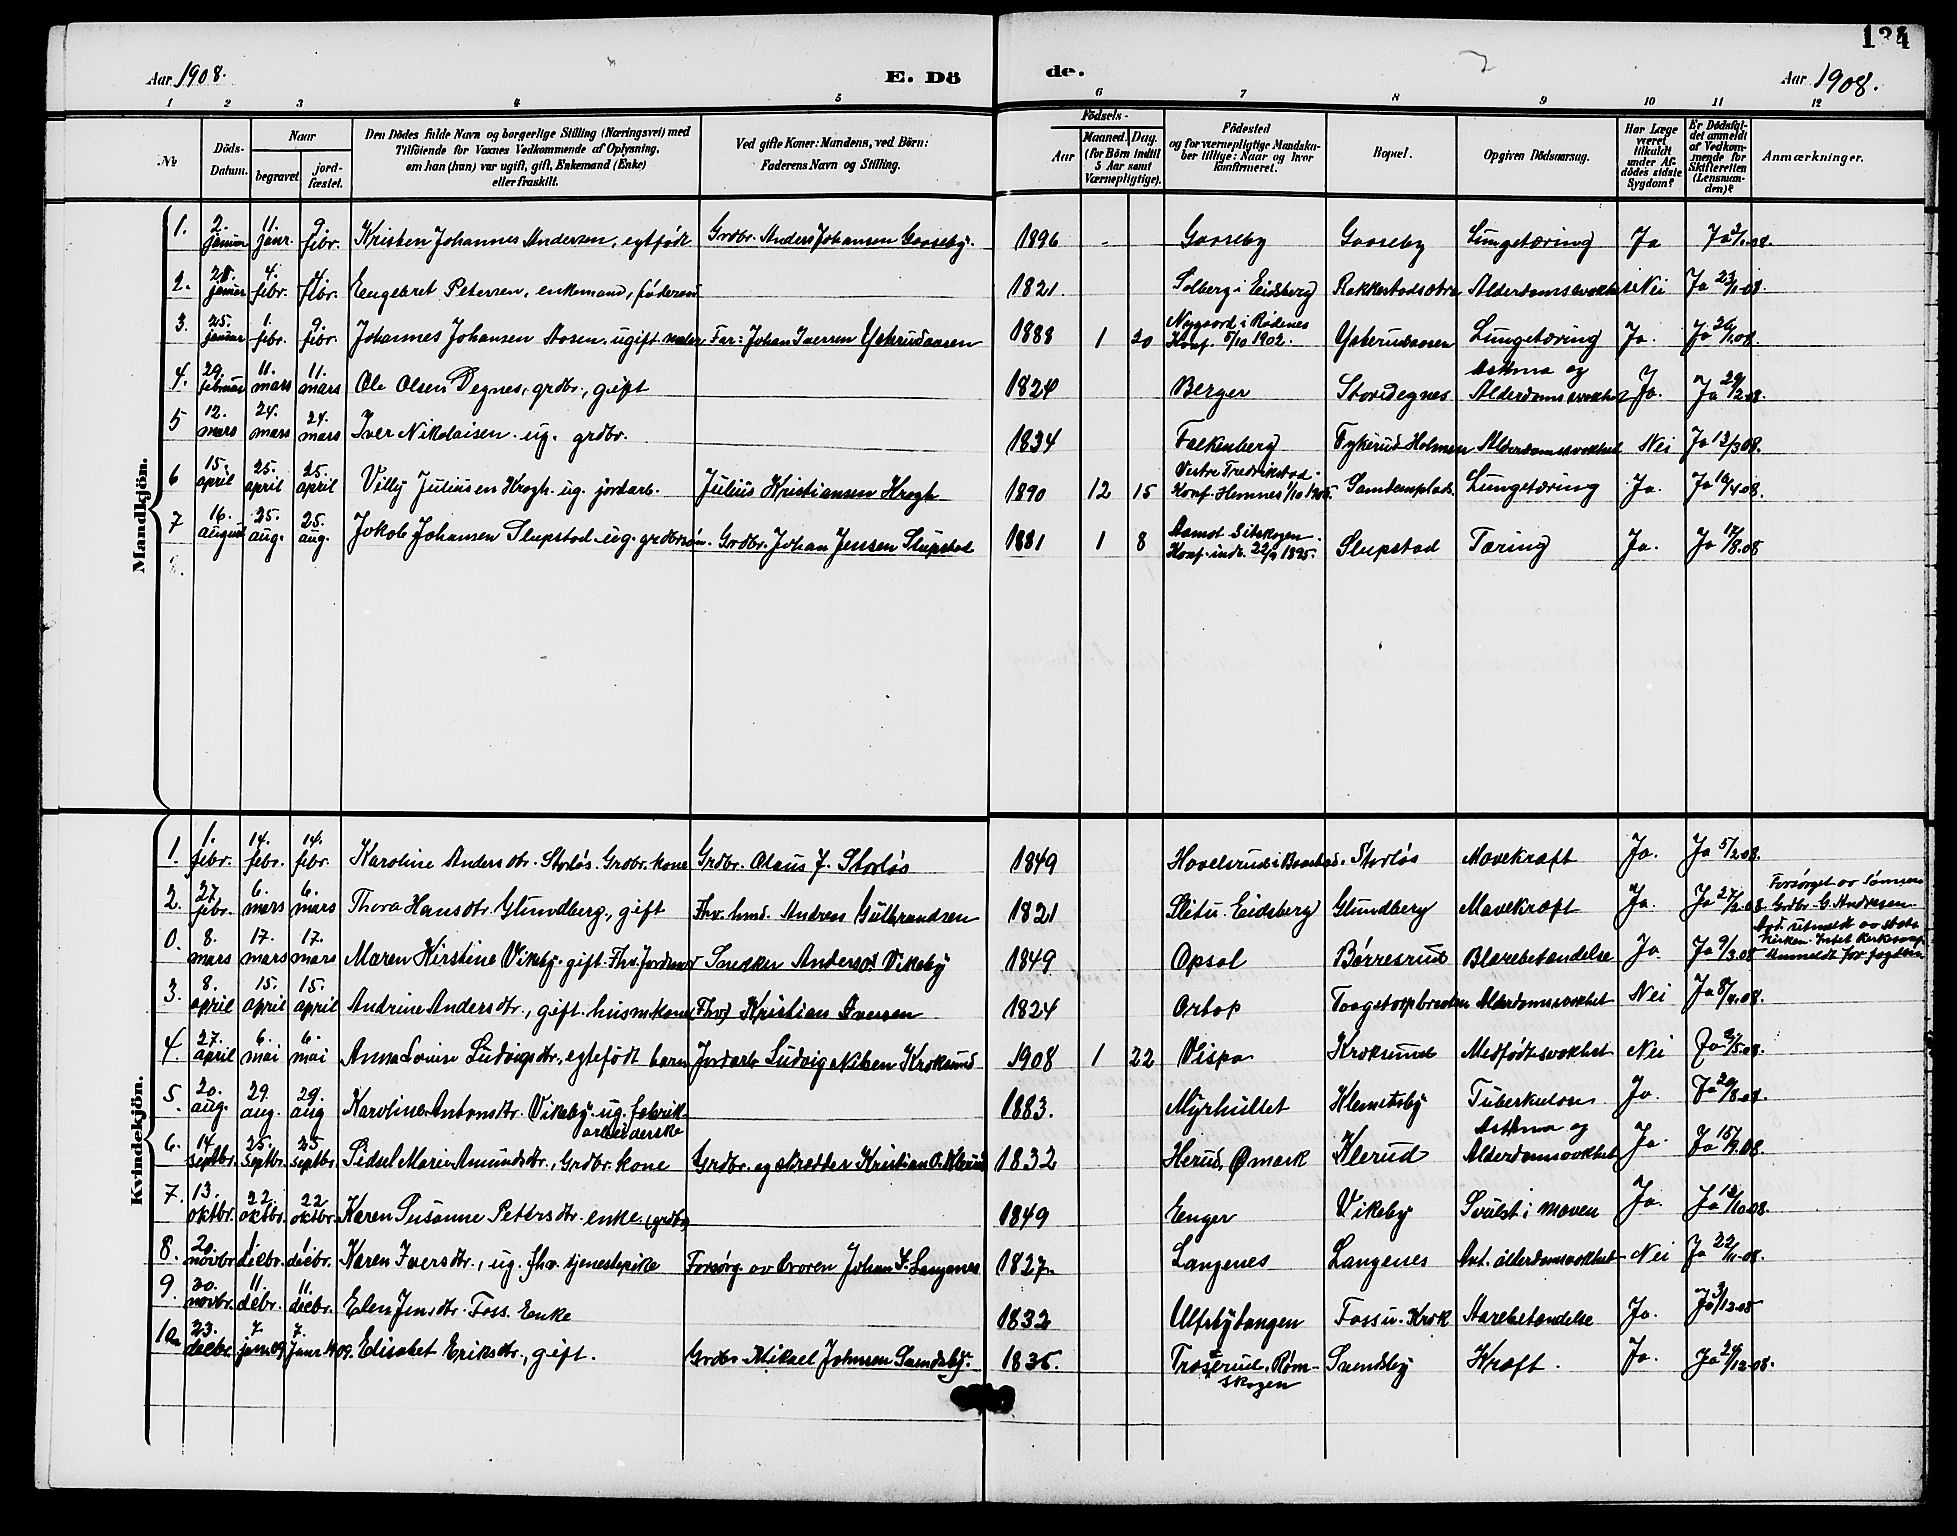 134
Aar 1908. E. Dö de. Aar 1908.
1 2 3 4 5 6 7 8 9 10 11 12
No
Döds-Datum.
Naar
begravet
jord-fæstet.
Den Dödes fulde Navn og borgerlige Stilling (Næringsvei) med
Tilföiende for Voxnes Vedkommende af Oplysning,
om han (hun) var ugift, gift, Enkemand (Enke)
eller fraskilt.
Ved gifte Koner: Mandens, ved Börn:
Faderens Navn og Stilling.
Födsels-
Aar
Maaned. Dag.
(for Börn indtil
5 Aar samt
Værnepligtige).
Födested
og for værnepligtige Mandskaber tillige: Naar og hvor
konfirmeret.
Bopæl.
Opgiven Dödsaarsag.
Har Læge
været
tilkaldt
under Afdödes sidste
Sygdom?
Er Dödsfaldet anmeldt
af Vedkommende for
Skifteretten
(Lensmanden)?
Anmærkninger.
Mandkjön.
1. 2. januar 11. janr. 9. febr. Kristen Johannes Andersen, egtefödt Grdbr. Anders Johansen Gaaseby. 1896 - Gaaseby Gaaseby Lungetæring Ja Ja 3/1.08.
2. 21. januar 4. febr. 4. febr. Engebret Petersen, enkemand, föderaad 1821. Solberg i Eidsberg Rakkestadsætra Alderdomssvakhet Nei Ja 23/1-08.
3. 25. januar 1. febr. 9. febr. Johannes Johansen Aasen, ugift maler Far: Johan Iversen Ysterudaasen 1888 1 20 Nygaard i Rödenes Konf. 5/10 1902. Ysterudaasen Lungetæring Ja. Ja 26/1.08.
4. 29. februar 11. mars 11. mars Ole Olsen Degnes, grdbr., gift 1824 Berger Storedegnes Astma og Alderdomssvakhet Ja. Ja 29/2.08.
5 12. mars 24. mars 24. mars Iver Nikolaisen. ug. grdbr. 1834 Falkenberg Tykerud Holmen Alderdomssvakhet Nei Ja 13/3 08.
6 15. april 25. april 25. april Villy Juliusen Krogh. ug. jordarb. Julius Kristiansen Krogh 1890 12 15 Vestre Fredrikstad. Konf. Hemnes 1/10 1905. Lungetæring Ja. Ja 16/4 08.
7 16. august 25. aug. 25. aug. Jakob Johansen Slupstad. ug. grdbrsön. Grdbr. Johan Jensen Slupstad 1881 1 8 Aamot Setskogen. Konf. 1895. Slupstad Tæring Ja. Ja 17/8.08
Kvindekjön.
1. 1. febr. 14. febr. 14. febr. Karoline Andersdtr. Storlös. Grdbr. kone Grdbr. Olaus J. Storlös 1849 Havelsrud i Baastad. Storlös Mavekræft Ja. Ja 5/2.08.
2. 27. febr. 6. mars 6. mars Thora Hansdtr. Glundberg, gift Fhv. hmd. Andreas Gulbrandsen 1821 Slitu. Eidsberg Glundberg Mavekræft Ja. Ja 27/2.08 Forsörget av Sönnen Grdbr. G. Andresen
0. 8. mars 17. mars 17. mars Maren Kirstine Vikeby. gift. Fhv. Jordmor Snekker Anders Vikeby 1849 Opsal Börresrud Blærebetændelse Ja. Ja 9/3.08 utmeldt av Stats kirken.
3. 8. april 15. april 15. april Andrine Andersdtr., gift. husmkone (Fhv.) Kristian Iversen 1824 Ortop Alderdomssvakhet Nei Ja 8/4.08.
4. 27. april 6. mai 6. mai Anna Lovise Ludvigsdtr., egtefödt barn Jordarb. Ludvig Nilsen Kroksund 1908 1 22 Vispa Kroksund Medfödt svakhet Nei Ja 2/5.08.
5. 20. aug. 29. aug. 29. aug Karoline Antonsdtr. Vikeby. ug. fabrik-arbeiderske 1883. Myrhultet Klemetsby Tuberkulose Ja. Ja 20/8.08.
6. 14. septbr. 25. septbr. 25. septbr. Sidsel Marie Amundsdtr., Grdbr. kone Grdbr. og skredder Kristian O. Klerud 1832 Herud, Ömark Klerud Astma og Alderdomssvakhet Ja. Ja 15/9.08.
7. 13. oktbr. 22. oktbr. 22 oktbr. Karen Susanne Petersdtr. enke (grdbr) 1849 Enger Vikeby Svulst i maven Ja. Ja 13/10 08.
8. 20. novbr. 1. decbr. 1. decbr. Karen Iversdtr., ug. fhv. tjenestepike Forsörg. av broren Johan I. Langenes 1827. Langenes Langenes Ant. alderdomssvakhet Nei Ja 22/11-08.
9 30. novbr. 11. debr. 11. decbr. Elen Jensdtr. Foss. Enke 1832 Ulfsbytangen Foss u. Krok Aarebetændelse Ja. Ja 3/12-08
10. 23. decbr. 7. janr 09. 7. janr 1909. Elisabet Eriksdtr., gift. Grdbr. Mikael Johnsen Svendsby. 1836. Traserud. Römskogen Svendsby Kræft. Ja. Ja 29/12-08.